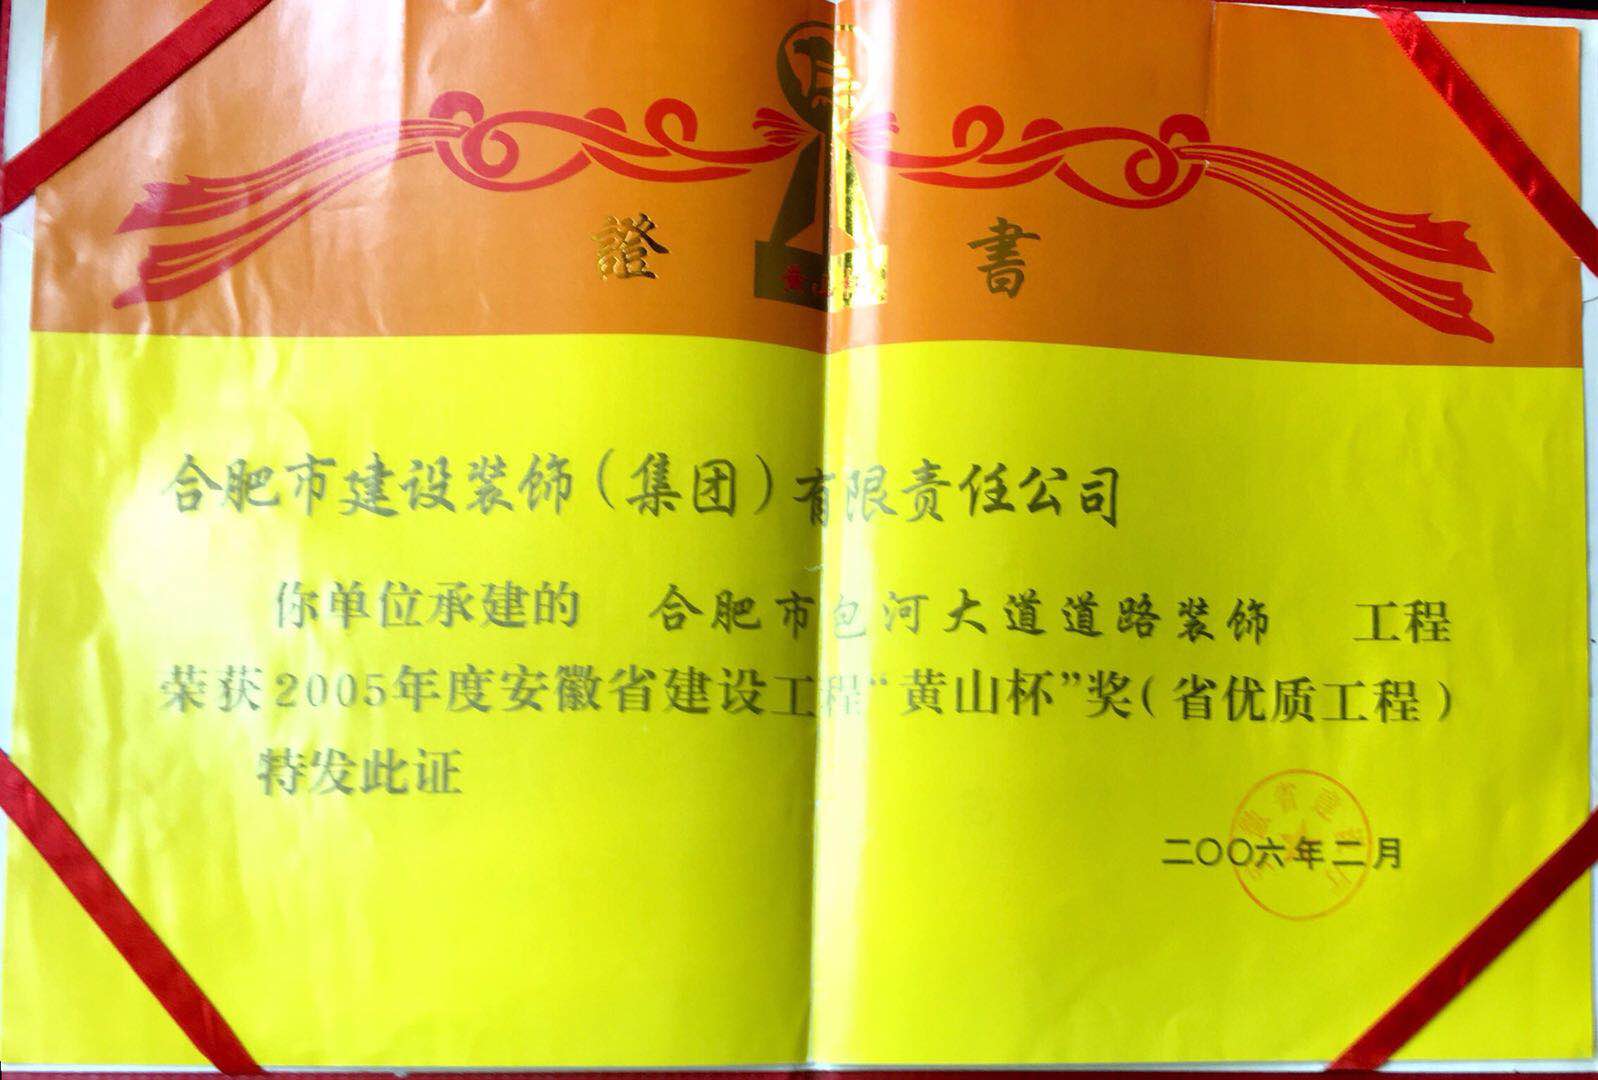 證 書
黄山
合肥市建设装饰（集团）有限责任公司
你单位承建的 合肥市包河大道道路装饰 工程
荣获2005年度安徽省建设工程“黄山杯”奖（省优质工程）
特发此证
二〇〇六年二月